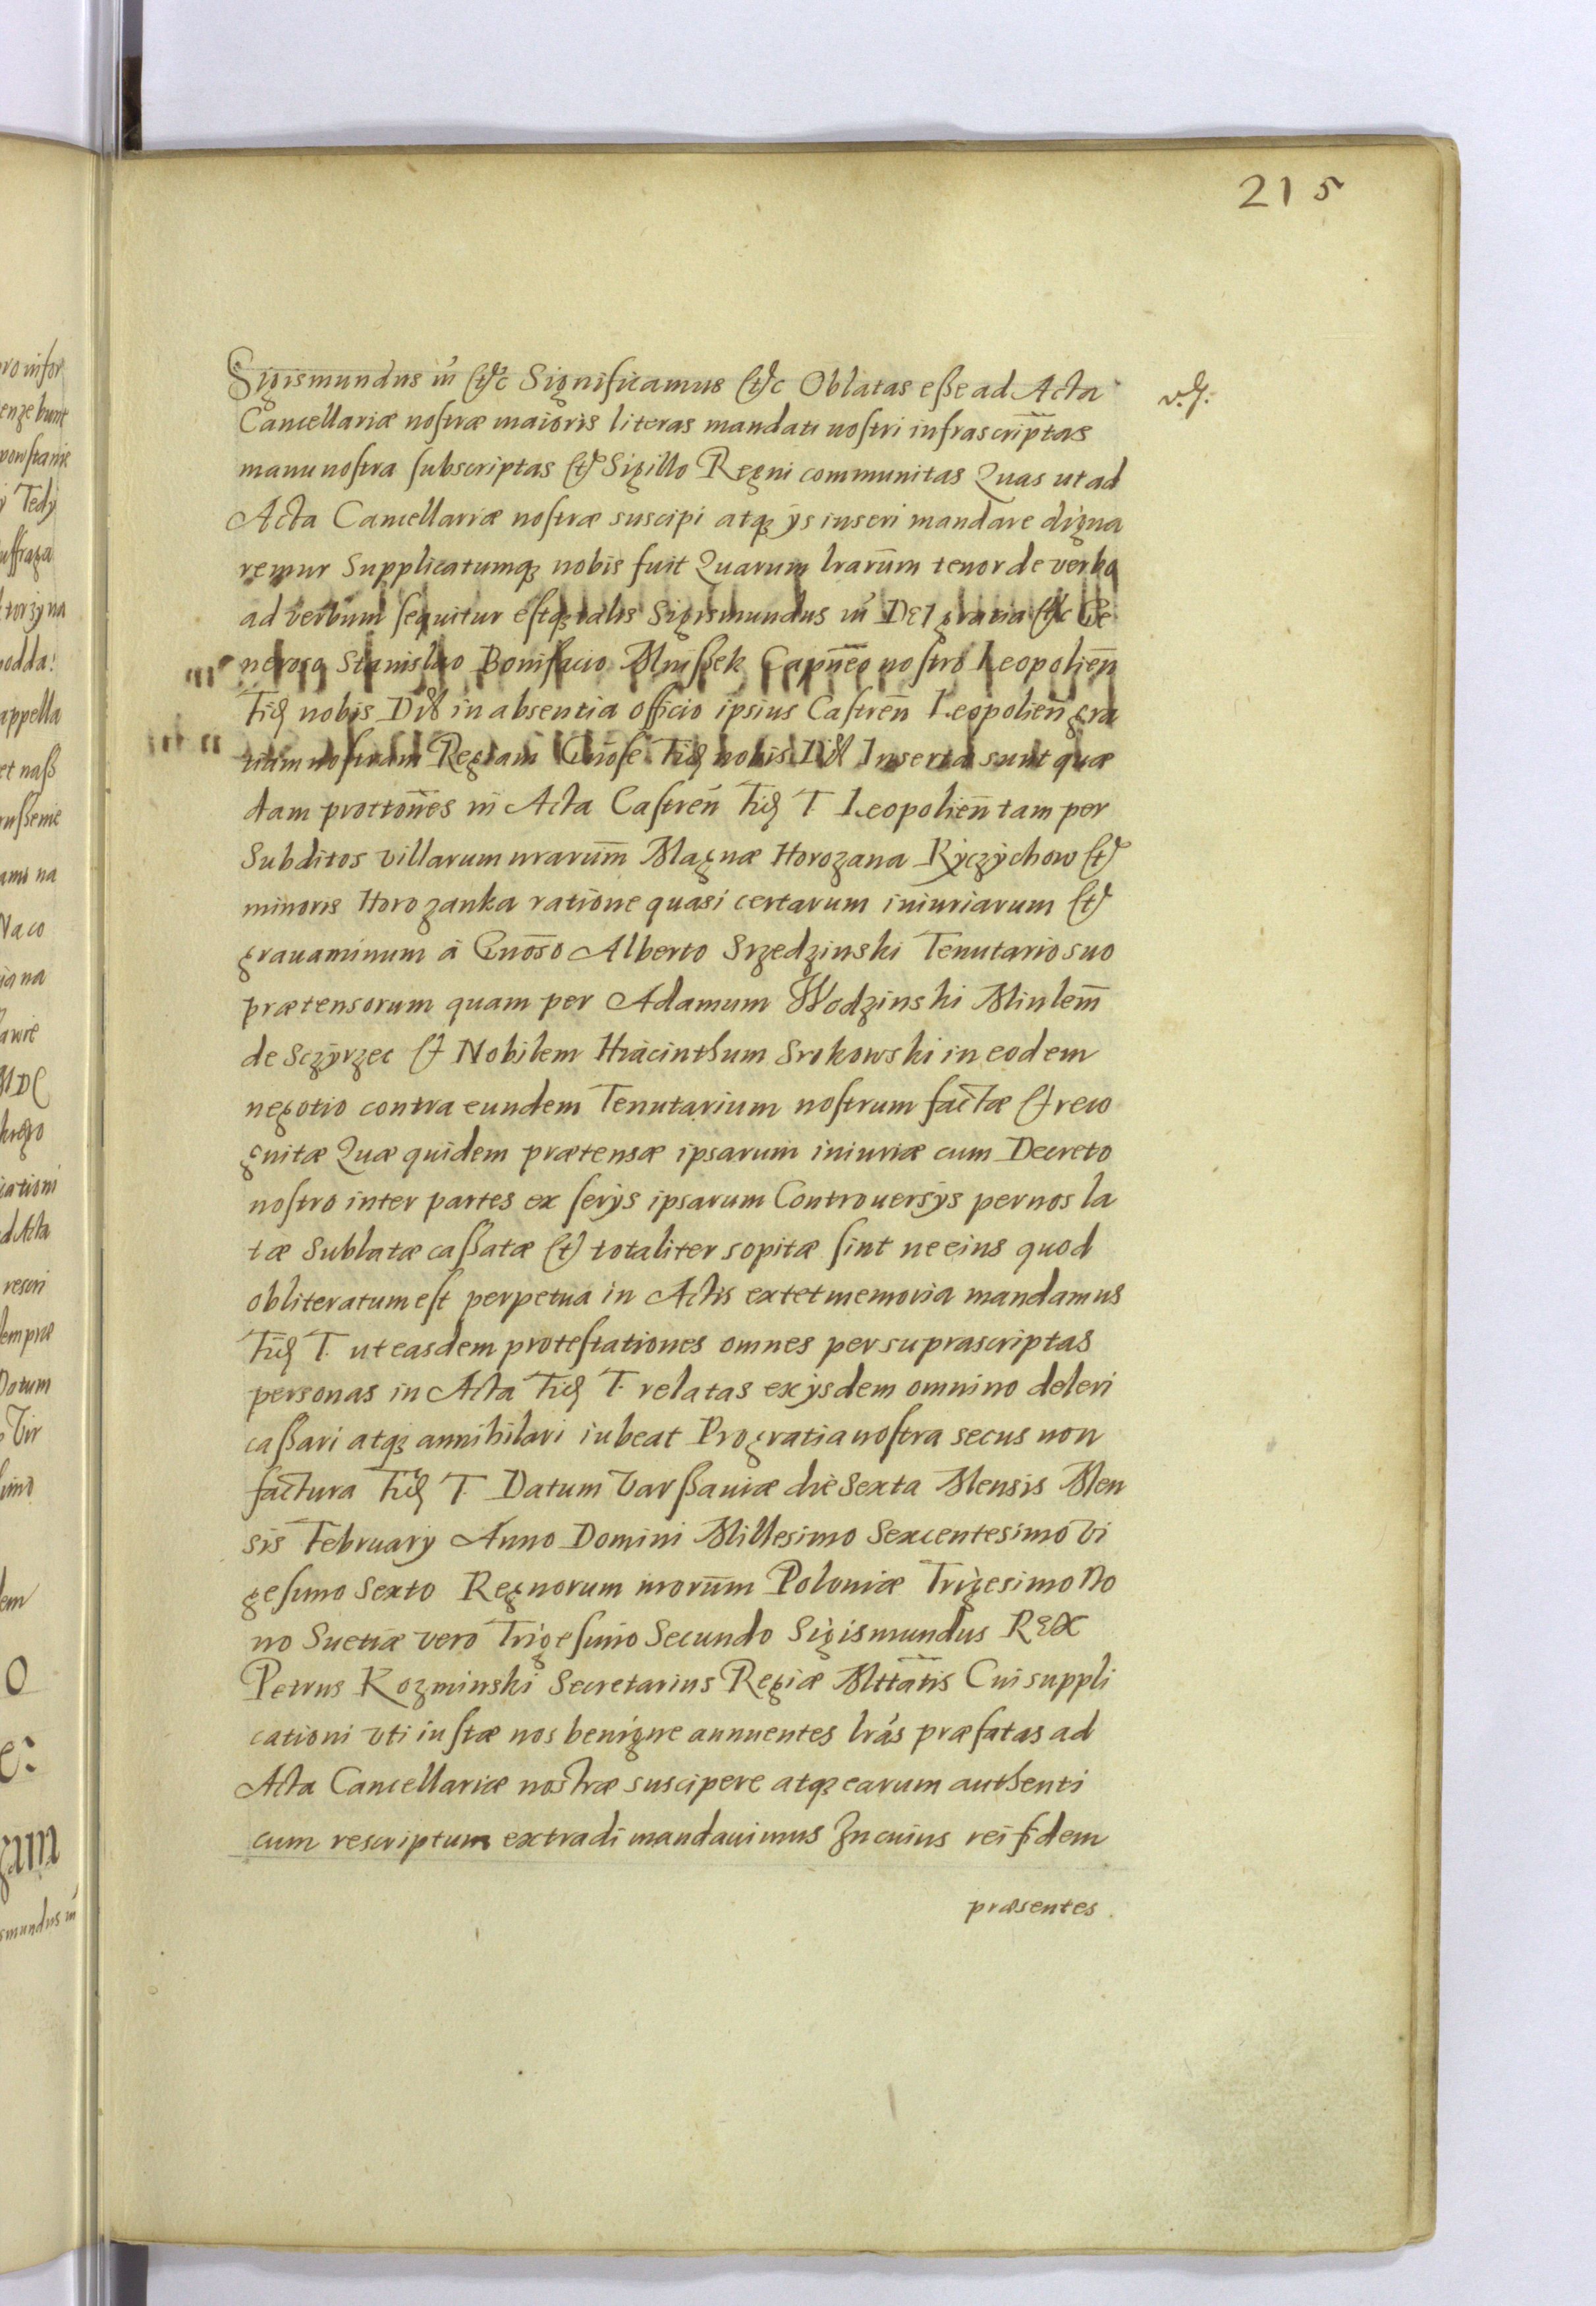 215
Sigismundus iii etc Significamus etc Oblatas eße ad Acta
Cancellariæ noſtræ maioris literas mandati noſtri infrascriptas
manu noſtra ſubscriptas et Sigillo Regni communitas Quas ut ad
Acta Cancellariæ noſtræ suscipi atq ÿs inseri mandare digna
remur Supplicatumq nobis fuit Quarum lrarum tenor de verbo
ad verbum ſequitur eſtq talis Sigismundus iii DEI gratia etc Ge
neroso Stanislao Bonifacio Mnißek Capneo noſtro Leopolien̄
fid nobis Dil in absentia officio ipsius Caſtren̄ Leopolien̄ gra
tiam noſtram Regiam Gnōſe fid nobis Dil Inserta sunt quæ
dam prottōnes in Acta Caſtren̄ fid T. Leopolien̄ tam per
Subditos villarum nrarum̄ Magnæ Horozana Ryczÿchow et
minoris Horozanka ratione quasi certarum iniuriarum et
grauaminum à Gnōso Alberto Srzedzinski Tenutario suo
prætensorum quam per Adamum Wodzinski
de Sczÿrzec et Nobilem Hiacinthum Srokowski in eodem
negotio contra eundem Tenutarium noſtrum factæ et reco
gnitæ Quæ quidem prætensæ ipsarum iniuriæ cum Decreto
noſtro inter partes ex ſerÿs ipsarum Controuersÿs per nos la
tæ Sublatæ caßatæ et totaliter sopitæ ſint ne eius quod
obliteratum eſt perpetua in Actis extet memoria mandamus
fid T. ut easdem proteſtationes omnes per suprascriptas
personas in Acta fid T. relatas ex ÿsdem omnino deleri
caßari atq annihilari iubeat Pro gratia noſtra secus non
factura fid T. Datum Varßauiæ die Sexta Mensis Men
sis Februarÿ Anno Domini Millesimo Sexcentesimo Vi
geſimo Sexto Regnorum nrorum̄ Poloniæ Trigesimo No
no Suetiæ vero Trigeſimo Secundo Sigismundus REX
Petrus Kozminski Secretarius Regiæ Mttatis Cui suppli
cationi vti iuſtæ nos benigne annuentes lras præfatas ad
Acta Cancellariæ nostræ suscipere atq earum authenti
cum rescriptum extradi mandauimus In cuius rei fidem
præsentes